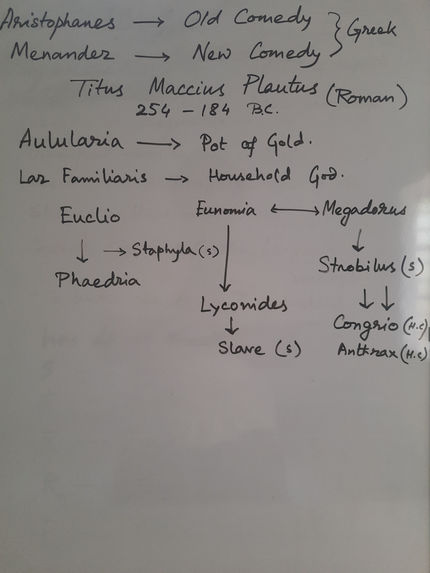 Aristophanes → Old Comedy } Greek
Menander → New Comedy
Titus Maccius Plautus (Roman)
254 - 184 B.C.
Aulularia → Pot of Gold.
Lar Familiaris → Household God.
Euclio Eunomia ↔ Megadorus
↓ → Staphyla (s) ↓ ↓
Phaedria Strobilus (s)
Lyconides ↓ ↓
↓ Congrio (H.C)
Slave (s) Anthrax (H.C)